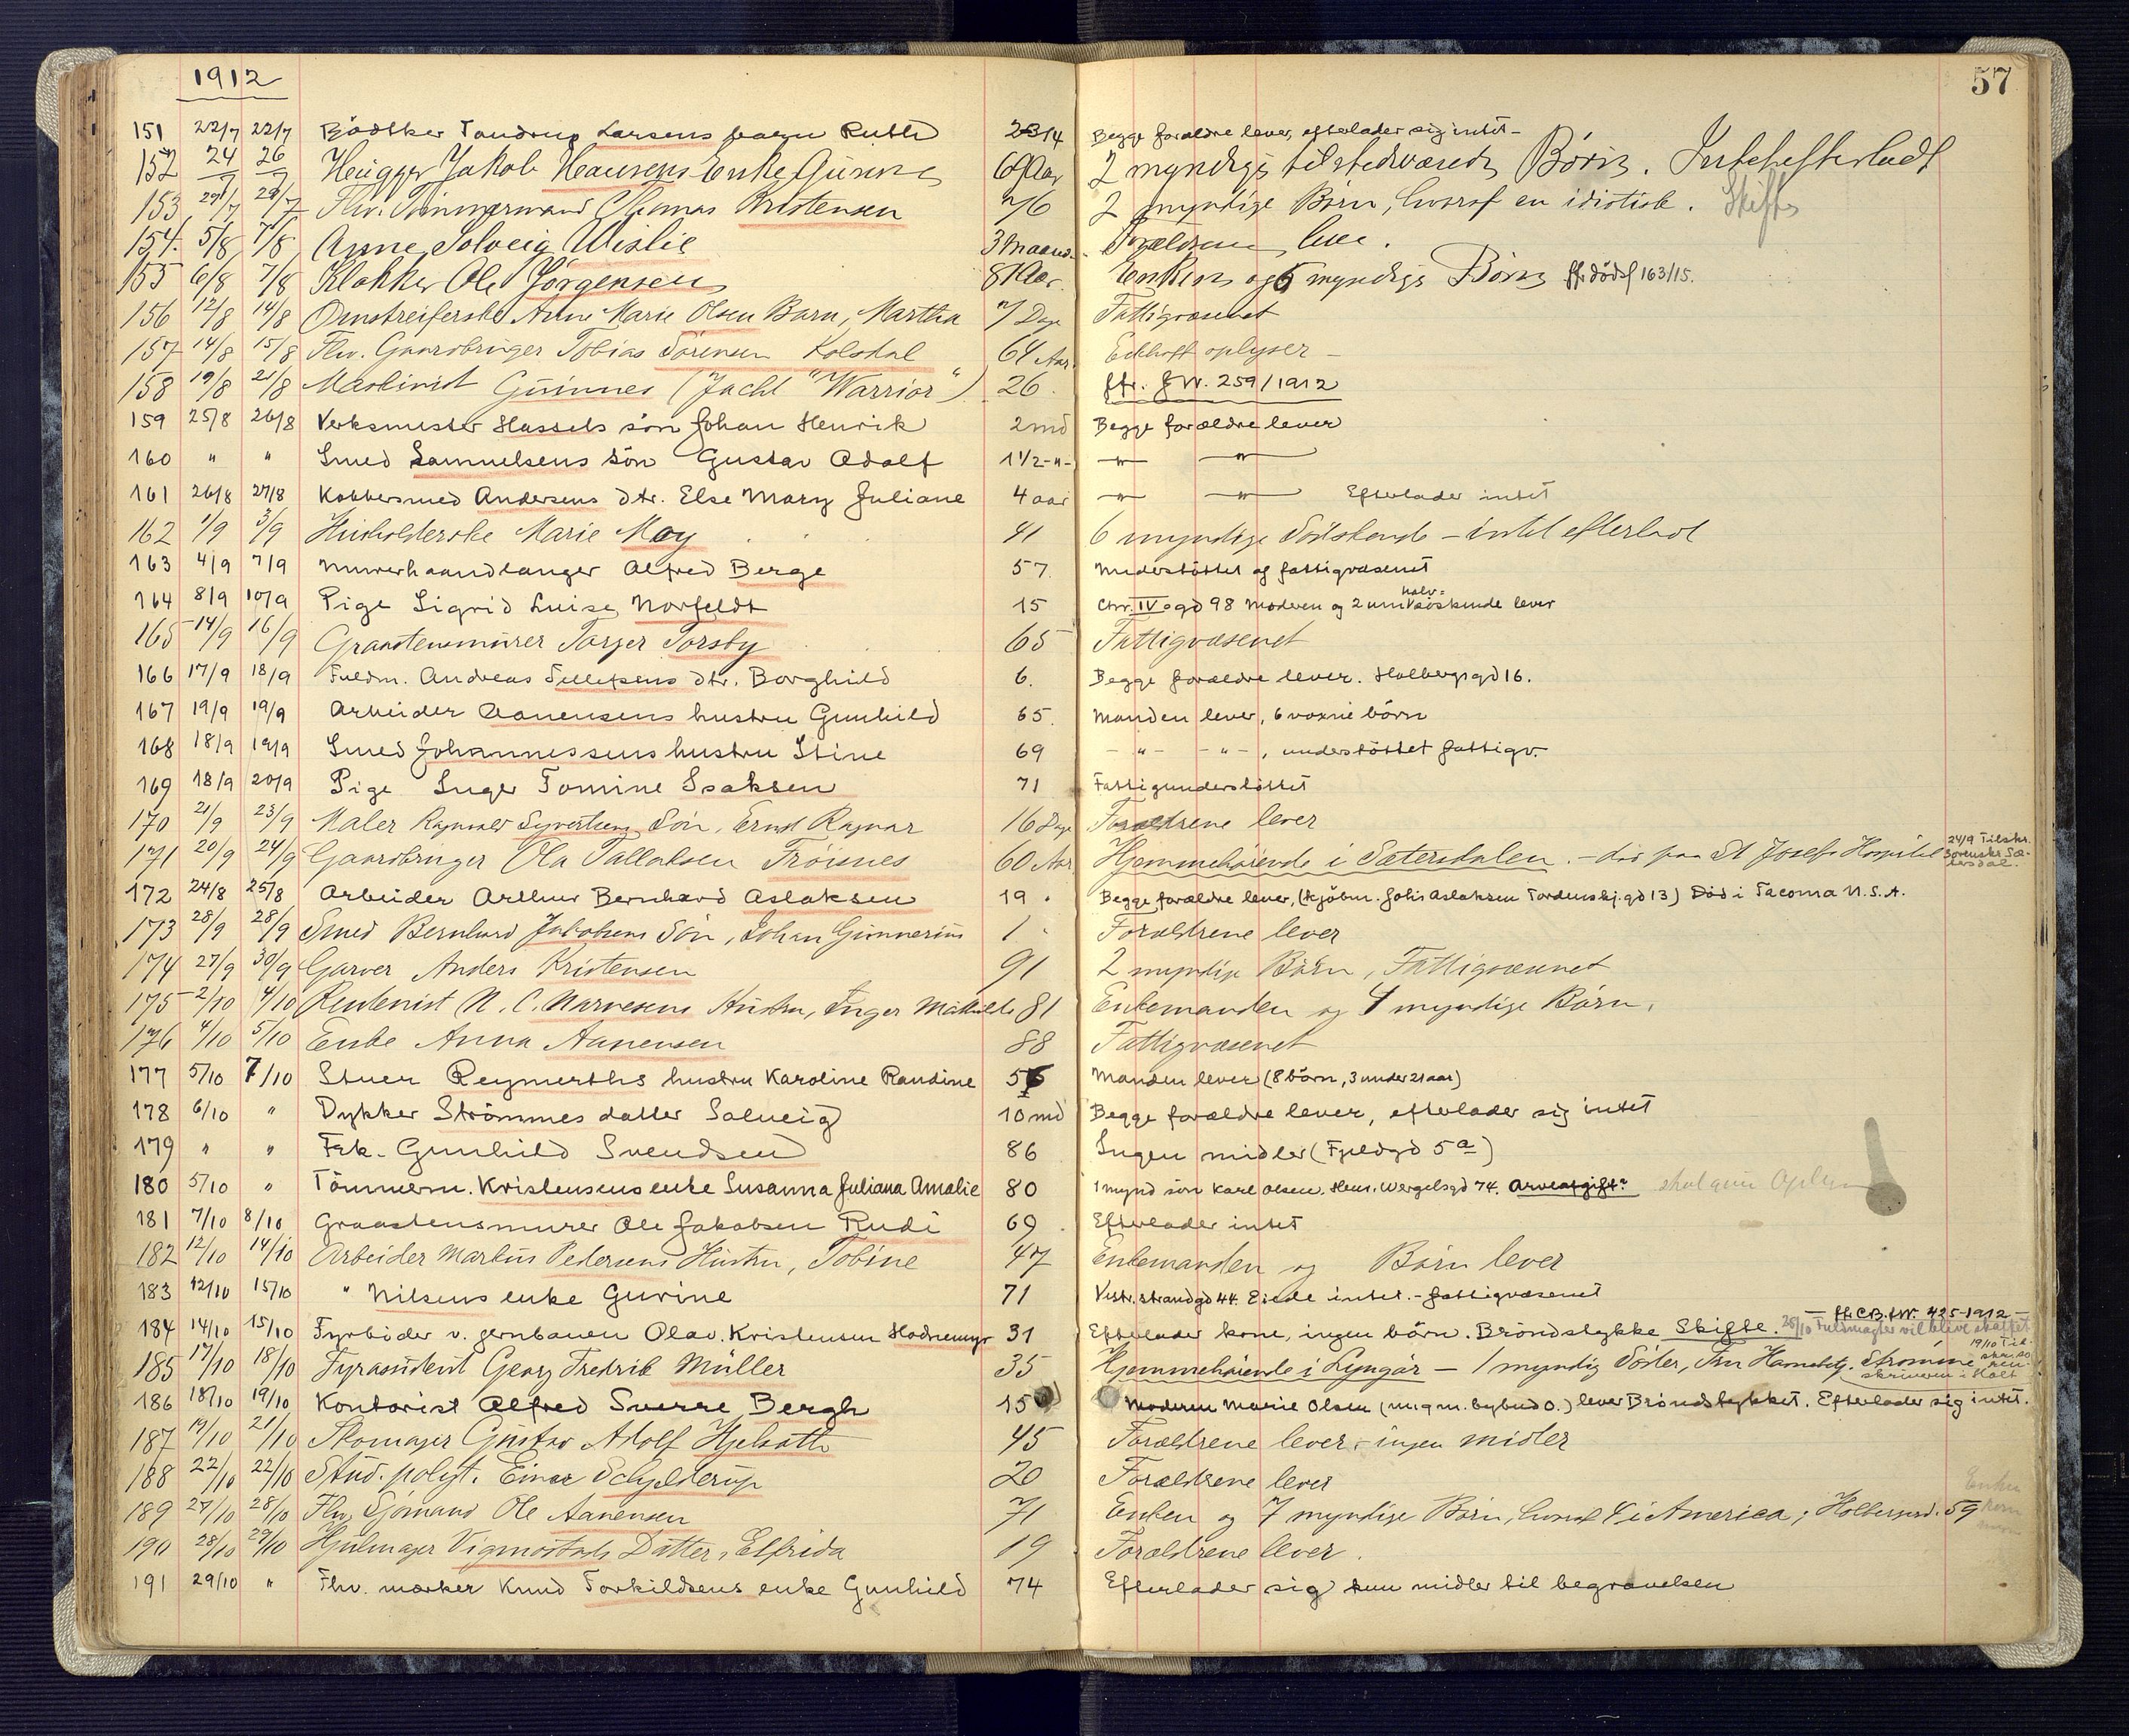 1912
57
151 22/7 22/7 Bödtker Tandrup Larsens barn Ruth 2 3/4 Begge forældre lever, efterlader sig intet -
152 24/7 26/7 Jakob Hansens Enke Gunne 2 myndige tilstedværende Børn. Intet efterladt
153 29/7 Fhv. Tømmermand Thomas Kristensen 76 2 myndige Børn, hvoraf en idiotisk. Skifte
154. 5/8 7/8 Anne Solveig Wislie 3 Maaned. Forældrene lever.
155 6/8 7/8 Klokker Ole Jørgensen 81 Aar. Enken og 5 myndige Børn ffr. dødsf 163/15.
156 12/8 14/8 Omstreiferske Anne Marie Olsen Barn, Martha 7 Dage Fattigvæsenet
157 14/8 15/8 Fhv. Gaardbruger Tobias Sörensen Kolsdal 64 Aar. Eckhoff oplyser -
158 19/8 21/8 Maskinist Guinnes (Jacht "Warrior") 26. ftr. J.Nr. 259/1912
159 25/8 26/8 Verksmester Hassels sön Johan Henrik 2 md Begge forældre lever
160 " " Smed Samuelsens sön Gustav Adolf 1 1/2 -"- -"- -"-
161 26/8 27/8 Kobbersmed Andersens dtr. Else Mary Juliane 4 aar -"- -"- Efterlader intet
162 1/9 3/9 Husholderske Marie Moy 41 6 myndige Södskende - intet efterladt
163 4/9 7/9 Murerhaandlanger Alfred Berge 57. Understöttet af fattigvæsenet
164 8/9 10/9 Pige Sigrid Luise Norfeldt 15 Chr. IV gd 98 Moderen og 2 um. halv=söskende lever
165 14/9 16/9 Graastensmurer Torjer Torsby 65 Fattigvæsenet
166 17/9 18/9 Fuldm. Andreas Tellefsens dtr. Borghild 6. Begge forældre lever. Holbergsgd 16.
167 19/9 19/9 Arbeider Aanensens hustru Gunhild 65. Manden lever, 6 voxne börn
168 18/9 19/9 Smed Johannessens hustru Stine 69 -"- -"-, understöttet fattigv.
169 18/9 20/9 Pige Inger Tomine Isaksen 71 Fattigunderstöttet
170 21/9 23/9 Maler Ragnvald Syvertsens Sön, Ernst Ragnar 16 Dage Forældrene lever
171 20/9 24/9 Gaardbruger Ola Tallaksen Tröisnes 60 Aar Hjemmehörende i Sætersdalen. - död paa St Josefs Hospital 24/9 Tilskr. Sorenskr. Sætersdal.
172 24/8 25/8 Arbeider Arthur Bernhard Aslaksen 19. Begge forældre lever, (kjöbm. Johs Aslaksen Tordenskj.gd 13) Död i Tacoma U.S.A.
173 28/9 28/9 Smed Bernhard Jakobsens Sön, Johan Gunnerius 1 Forældrene lever
174 27/9 30/9 Garver Anders Kristensen 91 2 myndige Börn, Fattigvæsenet
175 2/10 4/10 Rentenist N. C. Narvesens Hustru, Inger Mathilde 81 Enkemanden og 4 myndige Börn.
176 4/10 5/10 Enke Anna Aanensen 88 Fattigvæsenet
177 5/10 7/10 Stuer Reymerths hustru Karoline Randine 56 Manden lever (8 börn, 3 under 21 aar)
178 6/10 " Dykker Strömmes datter Solveig 10 md Begge forældre lever, efterlader sig intet
179 " " Frk. Gunhild Svendsen 86 Ingen midler (Fjeldgd 5a)
180 5/10 " Tömmerm. Kristensens enke Susanna Juliana Amalie 80 1 mynd sön Karl Olsen. Henr. Wergelsgd 74. Arveafgift.
181 7/10 8/10 Graastensmurer Ole Jakobsen Rudi 69. Efterlader intet
182 12/10 14/10 Arbeider Markus Pedersens Hustru, Tobine 47 Enkemanden og Börn lever
183 12/10 15/10 " Nilsens enke Gurine 71 Vestr. strandgd 44. Eiede intet. - fattigvæsenet
184 14/10 15/10 Fyrböder v. jernbanen Olav Kristensen Hodnemyr 31 Efterlader kone, ingen börn. Bröndstykke Skifte. 25/10 Fuldmagter vil blive skaffet ffr. C.B. Nr. 425-1912
185 17/10 18/10 Fyrassistent Georg Fredrik Müller 35 Hjemmehörende i Lyngör - 1 myndig Söster, Fru Strömme 19/10 Tilskr. Sorenskriveren i Holt
186 18/10 19/10 Kontorist Alfred Sverre Bergh 15 Moderen Marie Olsen (m.g.m. bybud O.) lever Bröndstykket. Efterlader sig intet.
187 19/10 21/10 Skomager Gustav Adolf Hjelsoth 45 Forældrene lever - ingen midler
188 22/10 22/10 Stud. polyt. Einar Schjelderup 20 Forældrene lever
189 27/10 28/10 Fhv. Sjömand Ole Aanensen 71 Enken og 7 myndige Börn, hvoraf 4 i America; Holbergsgd. 59
190 28/10 29/10 Hjulmager Vigmostads Datter, Elfrida 19 Forældrene lever.
191 29/10 " Fhv. mærker Knud Torkildsens enke Gunhild 74 Efterlader sig kun midler til begravelsen